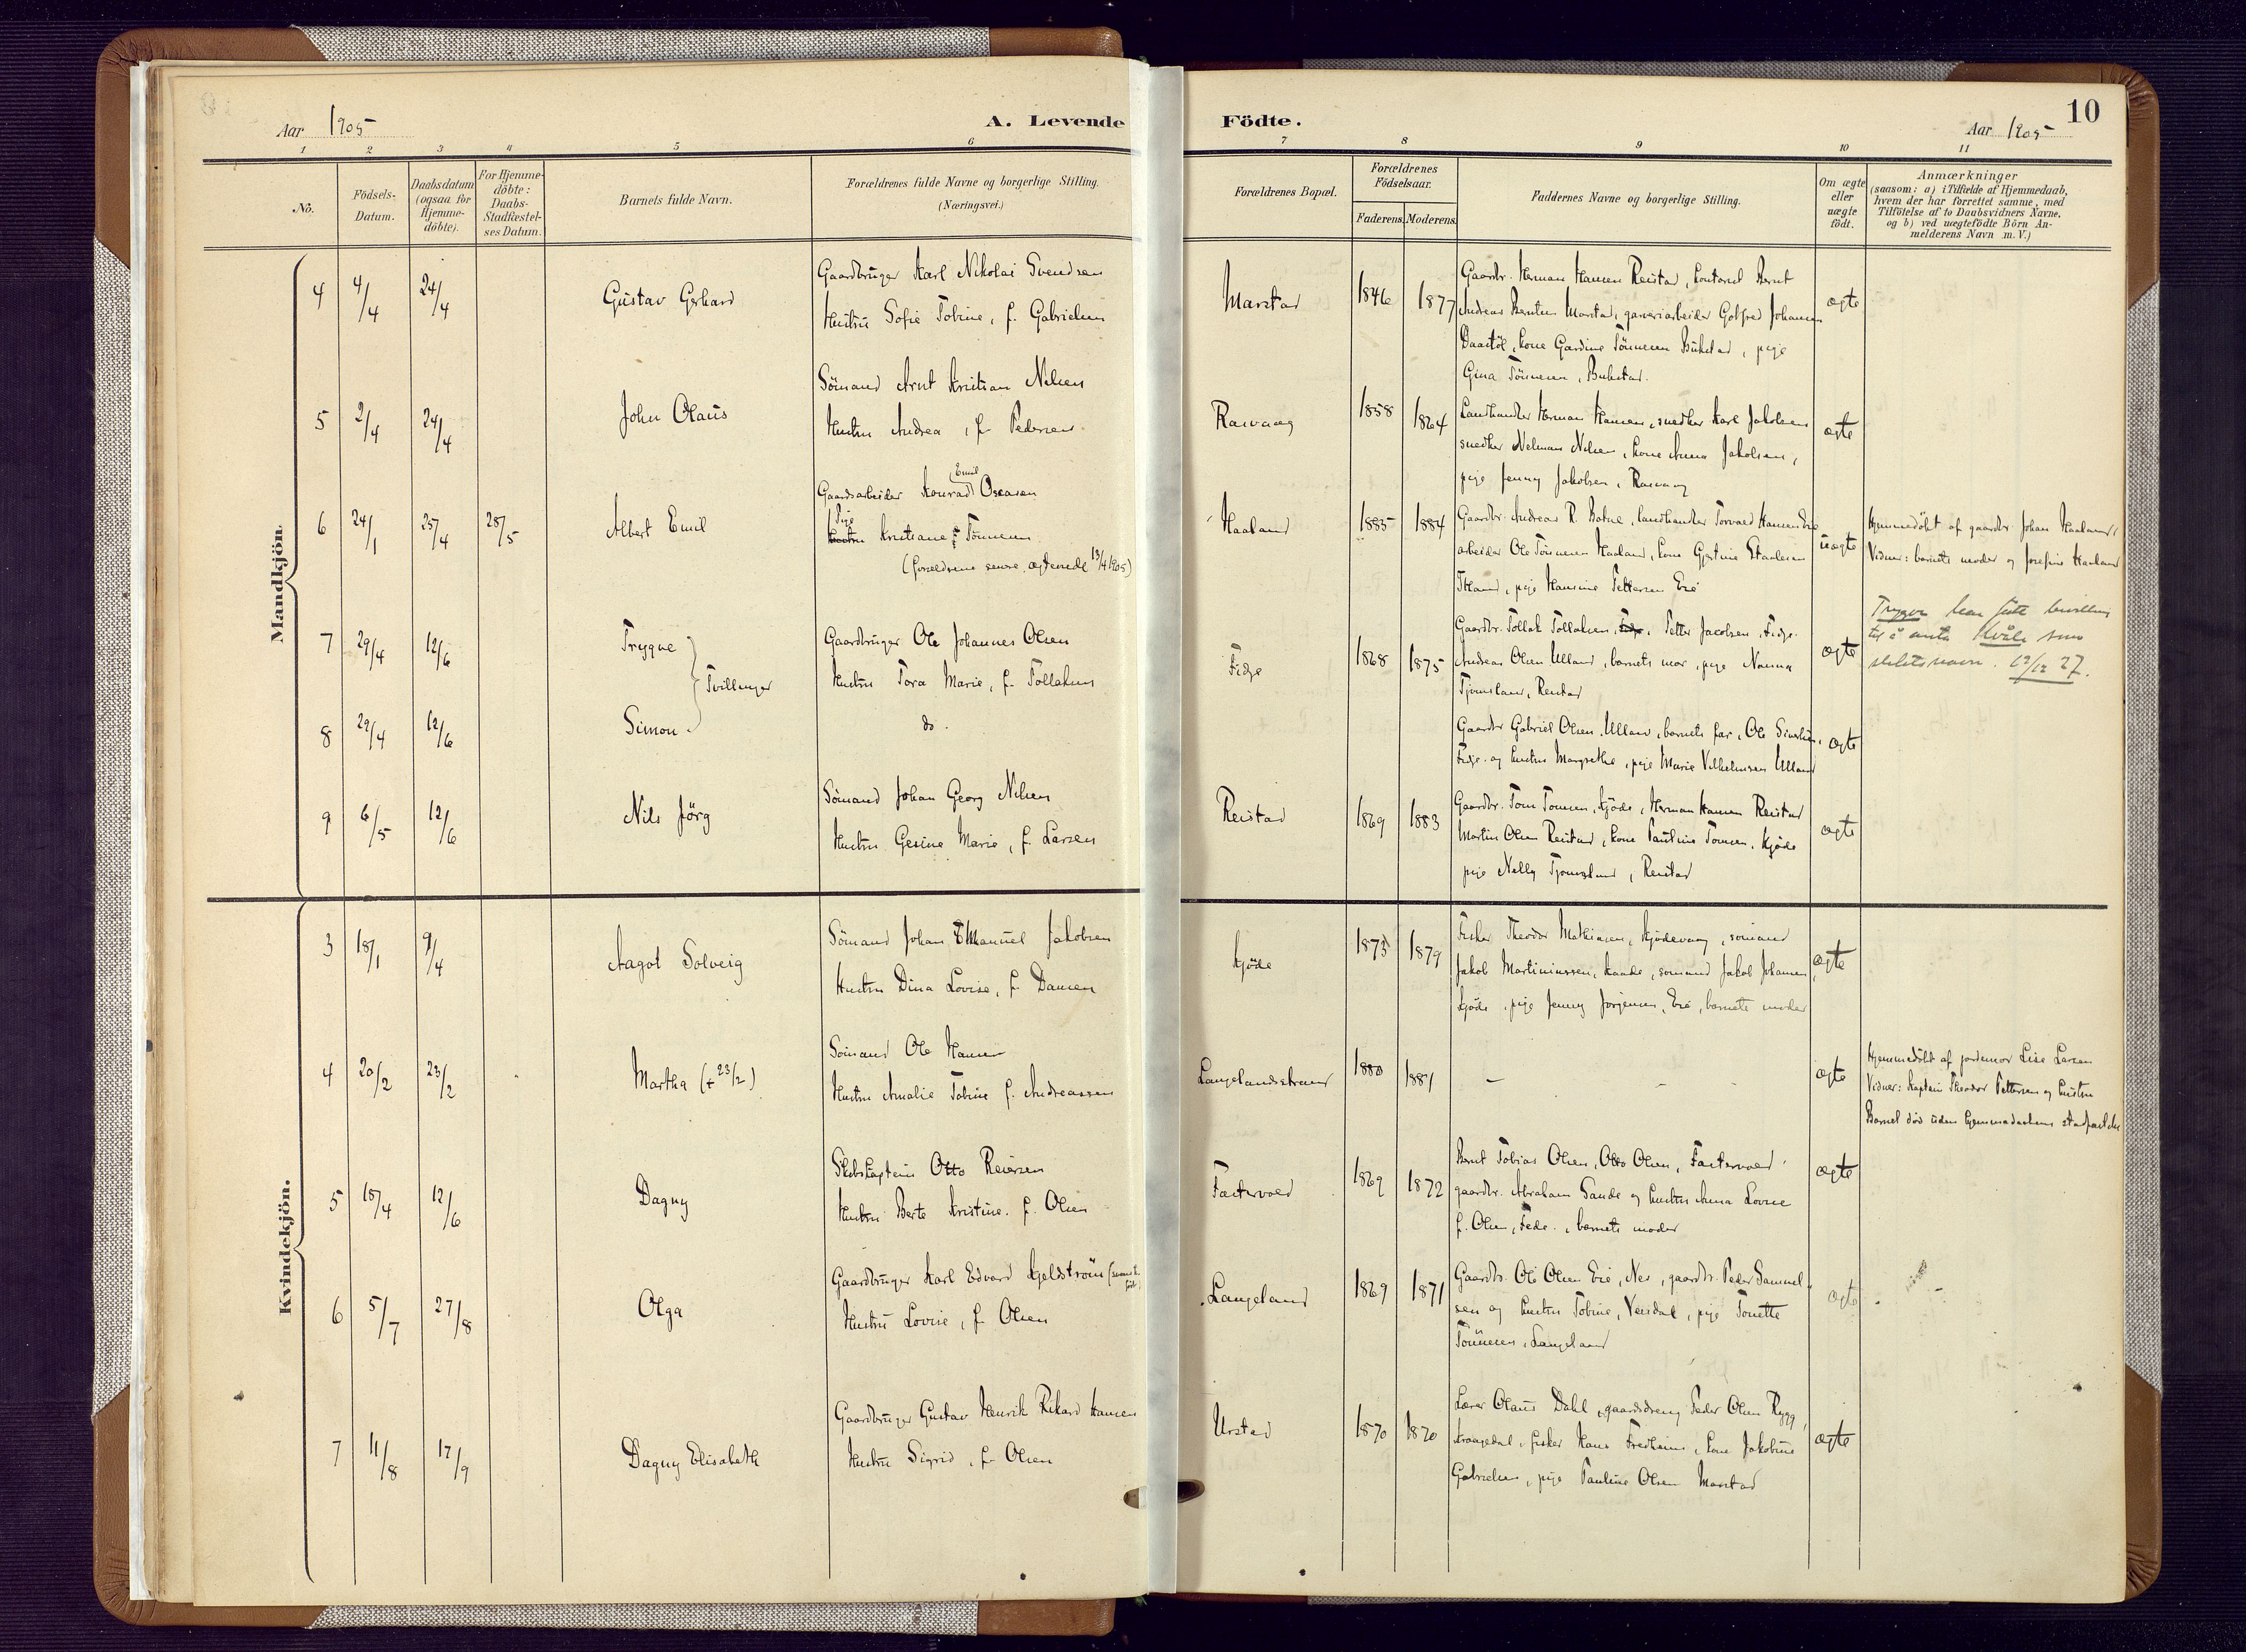 Aar 1905
A. Levende
1 2 3 4 5 6
No.
Födsels-Datum.
Daabsdatum (ogsaa for Hjemme-döbte).
For Hjemme-döbte: Daabs-Stadfæstel-ses Datum.
Barnets fulde Navn.
Forældrenes fulde Navne og borgerlige Stilling.
(Næringsvei.)
Födte.
Aar 1905
10
7 8 9 10 11
Forældrenes Bopæl.
Forældrenes Födselsaar.
Faderens. Moderens.
Faddernes Navne og borgerlige Stilling.
Om ægte eller uægte födt.
Anmærkninger
(saasom: a) i Tilfælde af Hjemmedaab,
hvem der har forrettet samme, med
Tilföielse af to Daabsvidners Navne,
og b) ved uægtefödte Börn An-
melderens Navn m. V.)
Mandkjön.
4 4/4 24/4 Gustav Gerhard
Gaardbruger Karl Nikolai Svendsen
Hustru Sofie Tobine, f. Gabrielsen
Marstad 1846 1877
Gaardbr. Herman Hansen Reistad, Bernt
Andreas Berntsen Marstad, garveriarbeider Gotfred Johansen
kone Gardine Tönnesen Bukstad, pige
Gina Tönnesen, Bukstad.
ægte
5 2/4 24/4 John Olaus
Sömand Arnt Kristian Nilsen
Hustru Andrea, f. Pedersen
Rasvaag 1858 1864
Landhandler Herman Hansen, snedker Karl Jakobsen
snedker Nelman Nilsen, kone Anna Jakobsen,
pige Jenny Jakobsen, Rasvaag
ægte
6 24/1 25/4 28/5 Albert Emil
Gaardsarbeider Konrad Emil Oseasen
Pige Kristiane Tönnesen
(forældrene senere ægteviede 13/4 1905)
Haaland 1885 1884
Gaardbr. Andreas R. Botne, landhandler Torvald Hansen Eie
arbeider Ole Tönnesen Haaland, kone Gjertine
pige Hansine Pettersen Eie
uægte
Hjemmedöbt af gaardbr. Johan Haaland,
Vidner: barnets moder og Josefine Haaland
7 29/4 12/6 Trygve
Tvillinger
Gaardbruger Ole Johannes Olsen
Hustru Tora Marie, f. Tollaksen
Fidje 1868 1875
Gaardbr. Tollak Tollaksen, Petter Jacobsen, Fidje.
Andreas Olsen Ulland, barnets mor, pige Nanna
Tjomsland, Reistad
ægte
Trygve har fått bevilling
til å anta Kvåle som
slektsnavn. 12/12 27.
8 29/4 12/6 Simon
do.
Gaardbr Gabriel Olsen Ulland, barnets far, Ole
Fidje og hustru Margrethe, pige Marie Vilhelmsen Ulland
ægte
9 6/5 12/6 Nils Jörg
Sömand Johan Georg Nilsen
Hustru Gesine Marie, f. Larsen
Reistad 1869 1883
Gaardbr. Tom Tomsen, Kjöde, Herman Hansen Reistad
Martin Olsen Reistad, kone Pauline Tomsen, Kjöde
pige Nelly Tjomsland, Reistad
ægte
Kvindekjön.
3 18/1 9/4 Aagot Solveig
Sömand Johan Emanuel Jakobsen
Hustru Dina Lovise, f. Dansen
Kjöde 1873 1879
Fisker Theodor Mathiasen, Kjödevaag, sömand
Jakob Martiniussen, Kaade, sömand Jakob Johansen
Kjöde, pige Jenny Jörgensen, Eie, barnets moder
ægte
4 20/2 23/2 Martha (+ 23/2)
Sömand Ole Hansen
Hustru Amalie Tobine f. Andreassen
Langelandsstrand 1880 1881
— — -
ægte
Hjemmedöbt af jordemor Lise Larsen
Vidner: kaptein Theodor Pettersen og hustru
Barnet död uden hjemmedaabens
5 15/4 12/6 Dagny
Skibskaptein Otto Reiersen
Hustru Berte Kristine. f. Olsen
1869 1872
Bernt Tobias Olsen, Otto Olsen,
gaardbr. Abraham Sande og hustru Anna Lovise
f. Olsen, Fede., barnets moder
ægte
6 5/7 27/8 Olga
Gaardbruger Karl Edvard Kjeldström (svensk
född)
Hustru Lovise, f. Olsen
Langeland 1869 1871
Gaardbr. Ole Olsen Eie, Nes, gaardbr. Peder Samuel-
sen og hustru Tobine, pige Tonette
Tönnesen, Langeland
ægte
7 11/8 17/9 Dagny Elisabeth
Gaardbruger Gustav Henrik Rikard Hansen
Hustru Sigrid, f. Olsen
Urstad 1870 1870
Lærer Olaus Dahl, gaardsdreng Peder Olsen Rygg,
fisker Hans Fredheim, kone Jakobine
Gabrielsen, pige Pauline Olsen Marstad
ægte